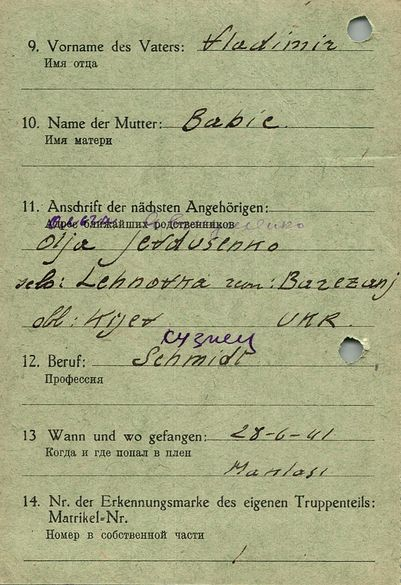 9. Vorname des Vaters: Vladimir
Имя отца
10. Name der Mutter: Babic.
Имя матери
11. Anschrift der nächsten Angehörigen:
Адрес ближайших родственников
Olja Jevdusenko
selo: Lehnovka : Barezanj
obl: Kijev UKR.
кузнец
12. Beruf: Schmidt
Профессия
13 Wann und wo gefangen: 28-6-41
Когда и где попал в плен
14. Nr. der Erkennungsmarke des eigenen Truppenteils:
Matrikel-Nr.
Номер в собственной части